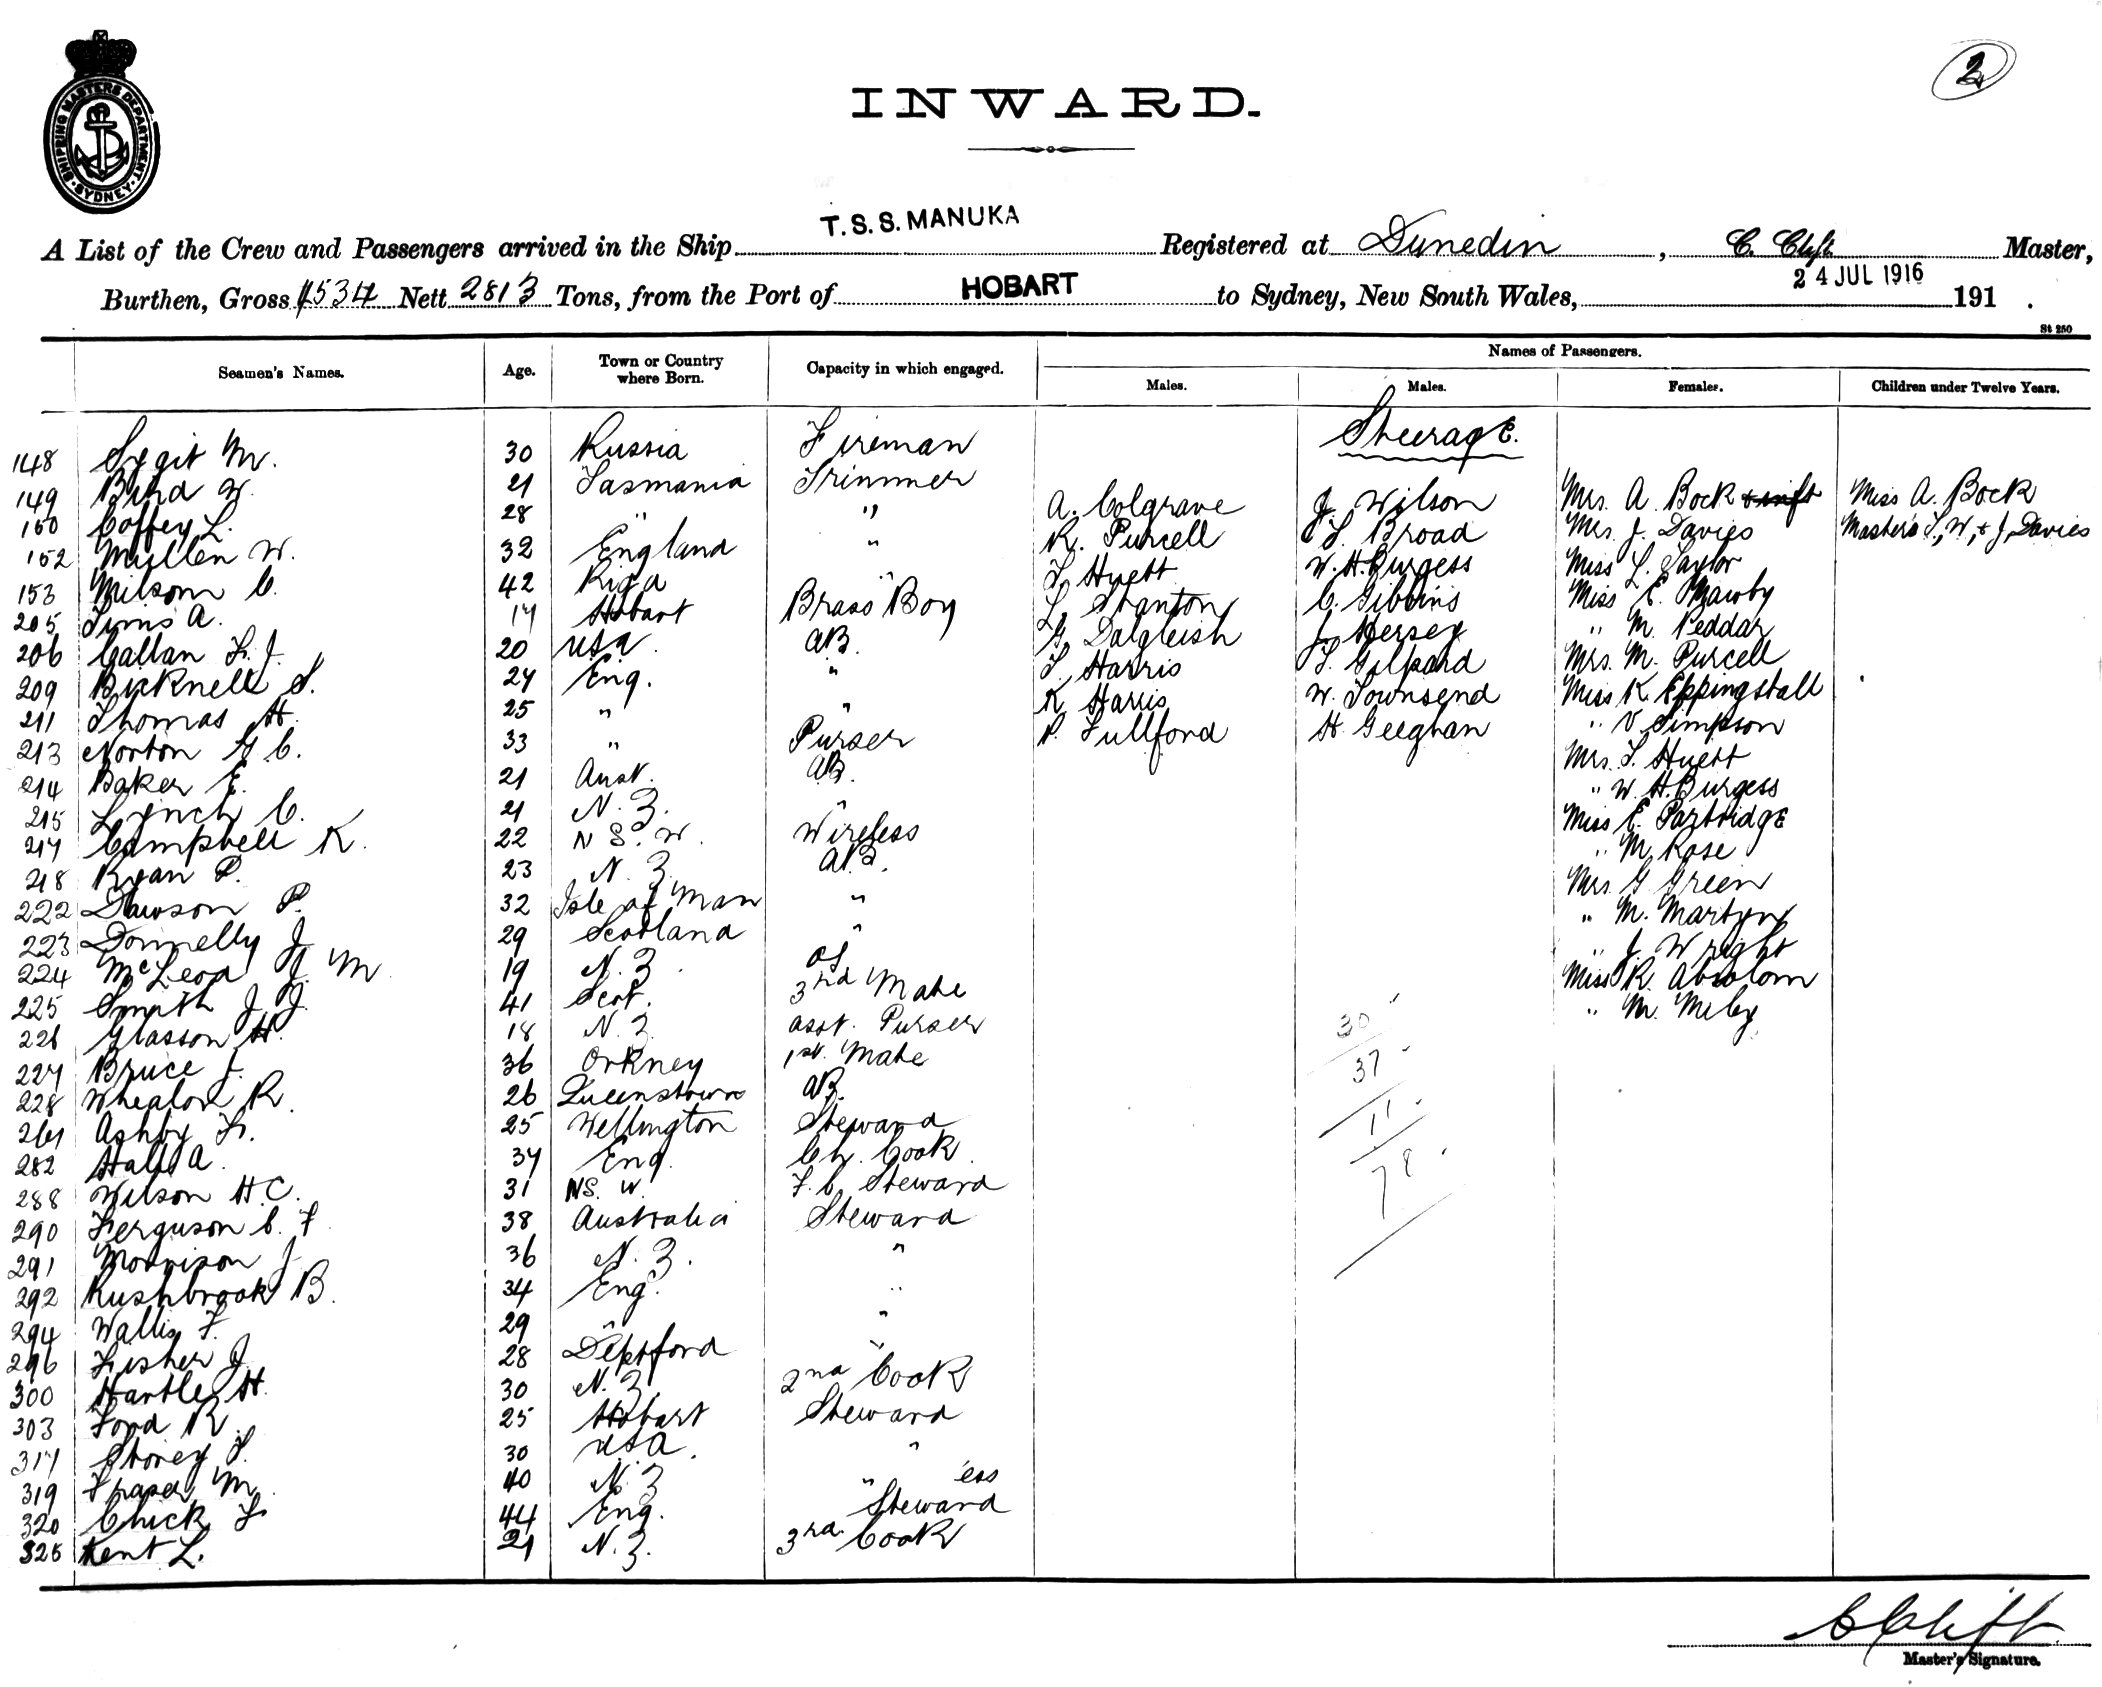 2
SHIPPING MASTERS DEPARTMENT. SYDNEY.
INWARD.
A List of the Crew and Passengers arrived in the Ship T.S.S. MANUKA Registered at Dunedin, C. Clift Master,
Burthen, Gross 4534 Nett 2813 Tons, from the Port of HOBART to Sydney, New South Wales, 24 JUL 1916 191 .
St 250
Seamen's Names. Age. Town or Country where Born. Capacity in which engaged. Names of Passengers.
Males. Males. Females. Children under Twelve Years.
Steerage.
148 Sygit M. 30 Russia Fireman
149 Bird W. 21 Tasmania Trimmer
150 Coffey L. 28 " "
152 Mullen W. 32 England "
153 Milsom C. 42 Riga "
205 Tims A. 17 Hobart Brass Boy
206 Callan F. J. 20 USA. AB.
209 Bicknell S. 27 Eng. "
211 Thomas H. 25 " "
213 Norton G C. 33 " Purser
214 Baker E. 21 Aust. AB.
215 Lynch C. 21 N.Z. "
217 Campbell K. 22 NS.W. Wireless
218 Ryan P. 23 N.Z. AB.
222 Dawson P. 32 Isle of Man "
223 Donnelly J 29 Scotland "
224 McLeod J. M 19 N.Z. OS
225 Smith J J. 41 Scot. 3rd Mate
226 Glasson H. 18 N.Z. Asst. Purser
227 Bruce J. 36 Orkney 1st. Mate
228 Whealon R. 26 Queenstown AB.
261 Ashby F. 25 Wellington Steward
282 Hall A. 37 Eng. Ch. Cook
288 Wilson H.C. 31 NS.W. F.C. Steward
290 Ferguson C. F 38 Australia Steward
291 Morrison J 36 N.Z. "
292 Rushbrook B. 34 Eng. "
294 Wallis F. 29 " "
296 Fisher J 28 Deptford "
300 Hartley H. 30 N.Z. 2nd Cook
303 Ford R. 25 Hobart Steward
317 Storey T. 30 USA. "
319 Fraser M. 40 N.Z. " ess
320 Chick F. 44 Eng. Steward
325 Kent L. 21 N.Z. 3rd Cook
A. Colgrave
R. Purcell
T. Hyett
L. Stanton
G. Dalgleish
T. Harris
K. Harris
P. Fullford
J. Wilson
T. Broad
W. H. Burgess
C. Gibbins
J. Hersey
T. Gilpard
W. Townsend
H. Geeghan
Mrs. A. Bock
Mrs. J. Davies
Miss L. Taylor
Miss E. Mawby
" M. Peddar
Mrs. M. Purcell
Miss K. Eppingstall
" V. Simpson
Mrs. T. Hyett
" W. H. Burgess
Miss E. Partridge
" M. Rose
Mrs. G. Green
" M. Martyn
" J. Wright
Miss R. Absolom
" M. Meby
Miss A. Bock
Masters T., W, & J. Davies
30
37
11
78
C Clift
Master's Signature.